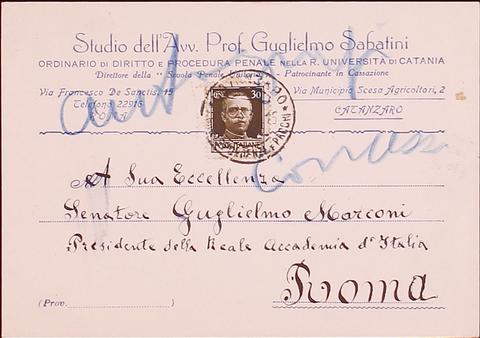 Studio dell'Avv. Prof. Guglielmo Sabatini
ORDINARIO DI DIRITTO E PROCEDURA PENALE NELLA R. UNIVERSITÀ DI CATANIA
Direttore della " Scuola Penale Unitaria " - Patrocinante in Cassazione
Via Francesco De Sanctis, 15
Telefono 22915
Via Municipio Scesa Agricoltori, 2
CATANZARO
CENT. 30
POSTE ITALIANE
A Sua Eccellenza
Senatore Guglielmo Marconi
Presidente della Reale Accademia d'Italia
Roma
(Prov. )